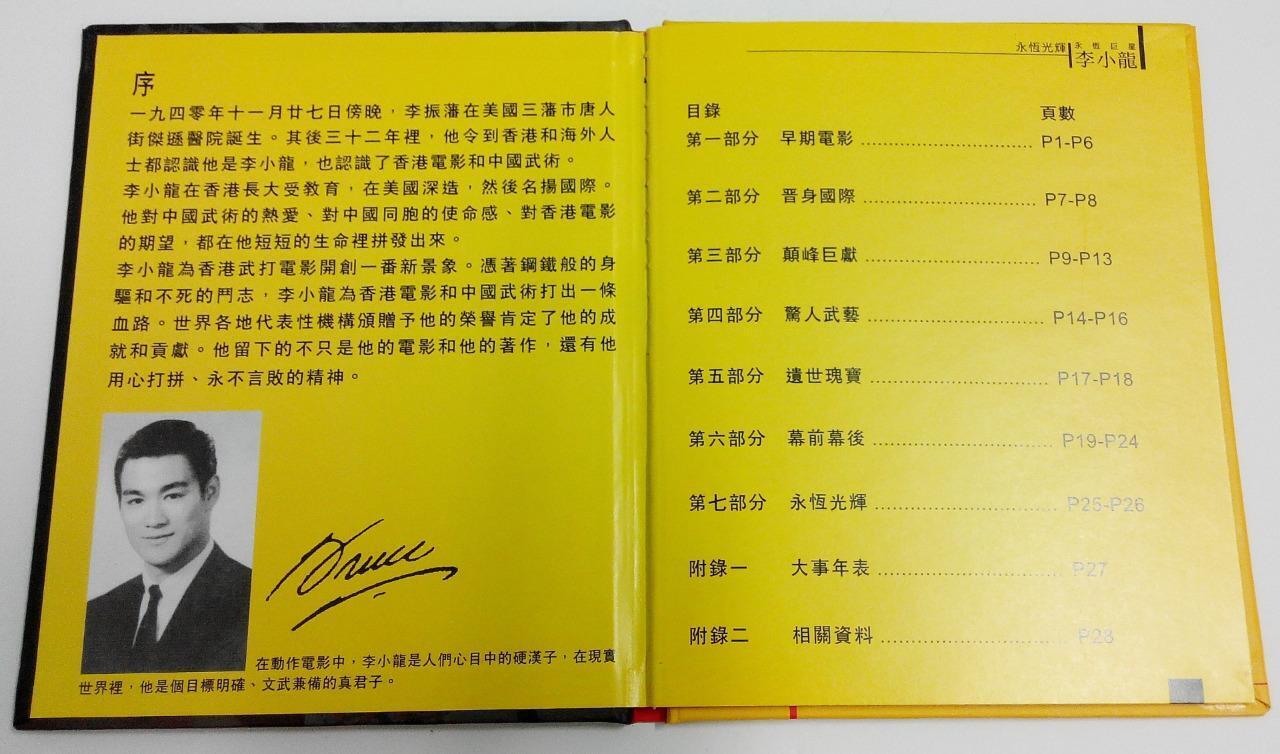 序
一九四零年十一月廿七日傍晚，李振藩在美國三藩市唐人
街傑遜醫院誕生。其後三十二年裡，他令到香港和海外人
士都認識他是李小龍，也認識了香港電影和中國武術。
李小龍在香港長大受教育，在美國深造，然後名揚國際。
他對中國武術的熱愛、對中國同胞的使命感、對香港電影
的期望，都在他短短的生命裡拼發出來。
李小龍為香港武打電影開創一番新景象。憑著鋼鐵般的身
驅和不死的鬥志，李小龍為香港電影和中國武術打出一條
血路。世界各地代表性機構頒贈予他的榮譽肯定了他的成
就和貢獻。他留下的不只是他的電影和他的著作，還有他
用心打拼、永不言敗的精神。
Bruce
在動作電影中，李小龍是人們心目中的硬漢子，在現實
世界裡，他是個目標明確、文武兼備的真君子。
永恆光輝 永恆巨星
李小龍
目錄 頁數
第一部分 早期電影 .............................. P1-P6
第二部分 晋身國際 .............................. P7-P8
第三部分 顛峰巨獻 .............................. P9-P13
第四部分 驚人武藝 .............................. P14-P16
第五部分 遺世瑰寶 .............................. P17-P18
第六部分 幕前幕後 .............................. P19-P24
第七部分 永恆光輝 .............................. P25-P26
附錄一 大事年表 .............................. P27
附錄二 相關資料 .............................. P28